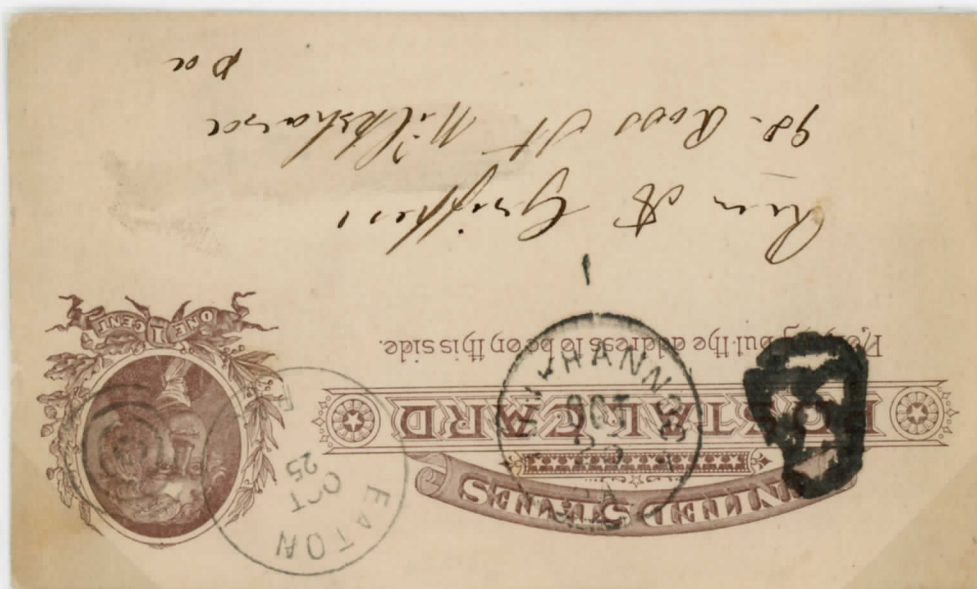 UNITED STATES
POSTAL CARD
Nothing but the address to be on this side.
ONE 1 CENT
EATON
OCT
25
OCT
PA
A Griffin
98. Ross St Wilksbarre
pa